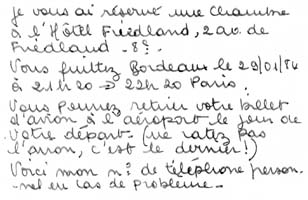 Je vous ai réservé une chambre
à l'Hôtel Friedland, 2 av. de
Friedland - 8è.
Vous quittez Bordeaux le 29/01/84
à 21h20 → 22h20 Paris.
Vous pouvez retirer votre billet
d'avion à l'aéroport le jour de
votre départ. (ne ratez pas
l'avion, c'est le dernier!)
Voici mon n° de téléphone person-
-nel en cas de problème -